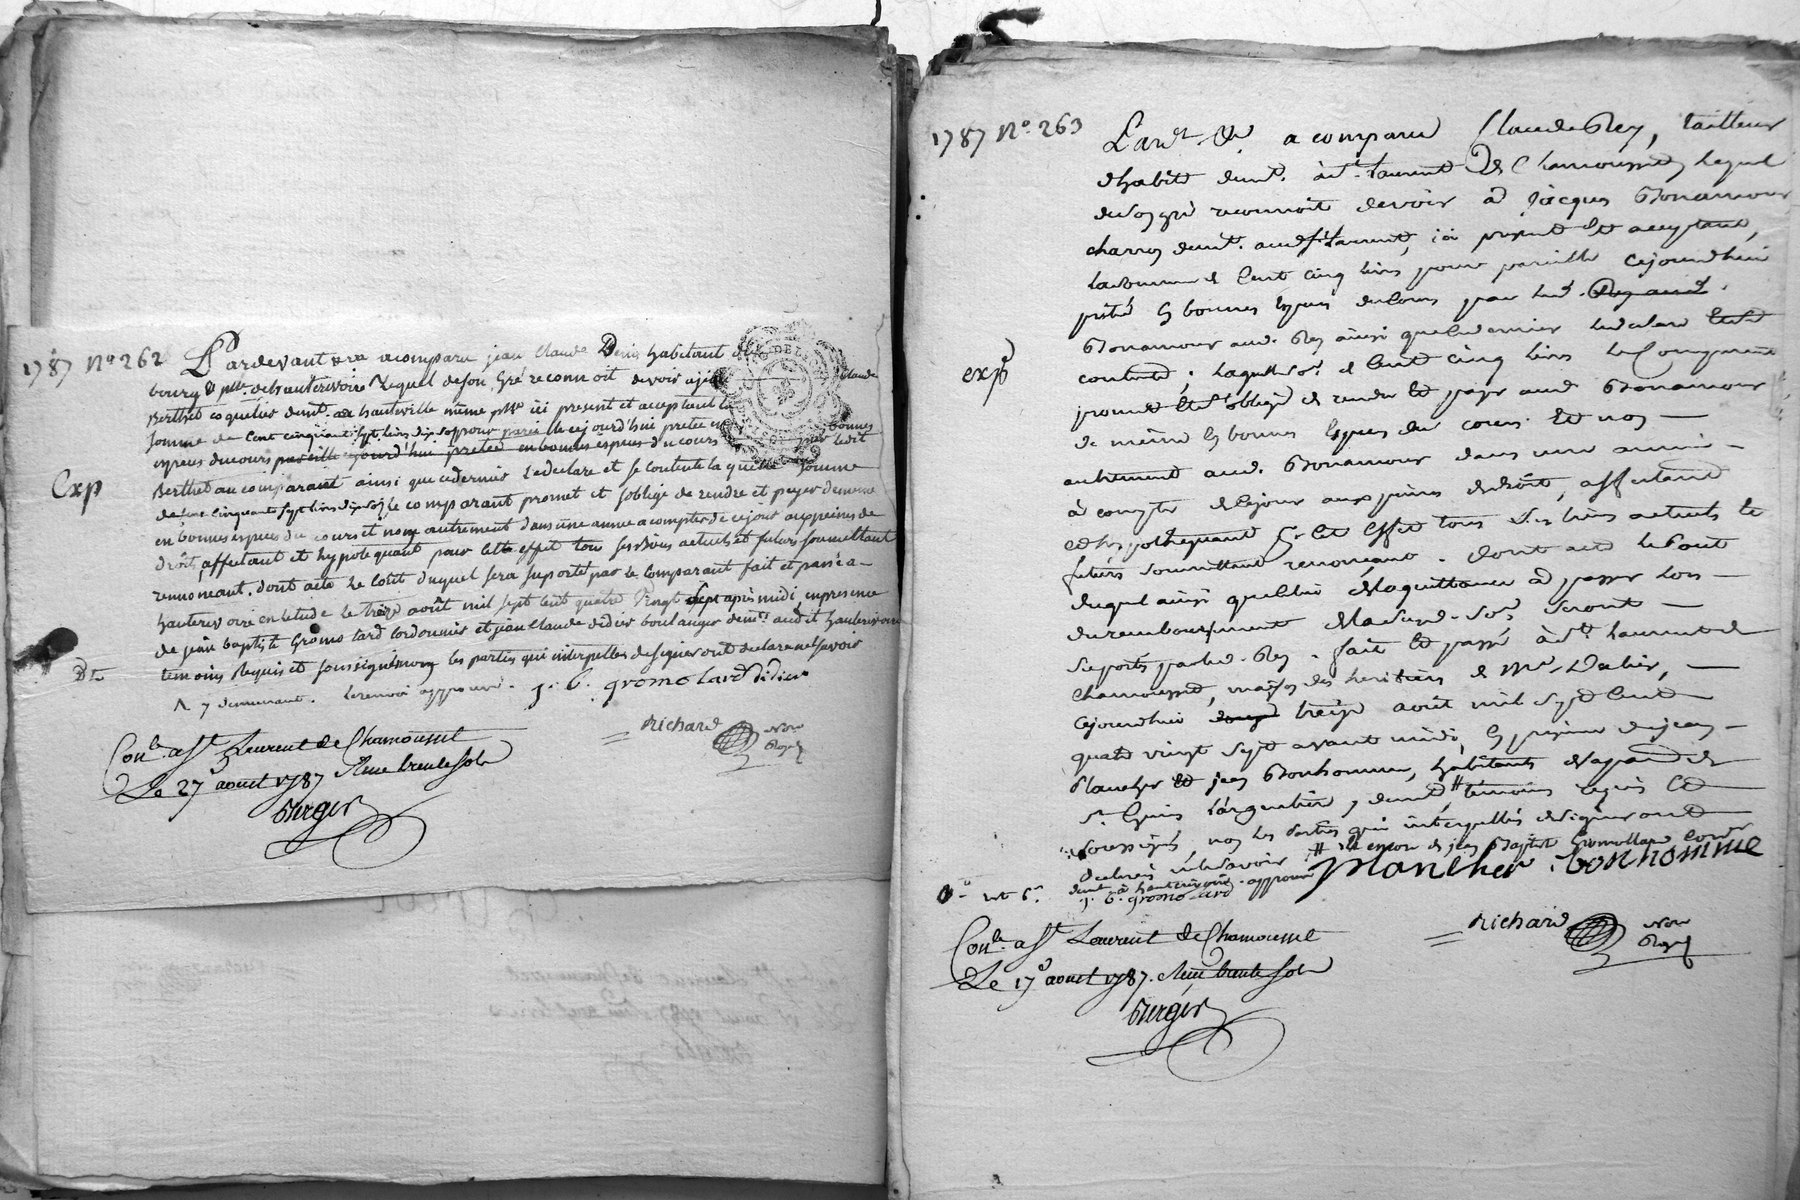 1787 No. 262 Pardevant &ra a comparu jean Claude Denis habitant
bourg & psse. de hauterivoire Lequel de son Gré reconnoit devoir a
Claude
Berthet coquetier demt. a hauteville même psse ici present et aceptant la
somme de Cent cinquante sept livres dix sols pour pareille cejourd'hui pretée en bonnes
especes du cours pareille cejourd'hui pretée en bonnes especes du cours par ledit
Exp
Berthet au comparant ainsi que cedernier Ledeclare et se contente laquelle somme
de Cent Cinquante sept livres dix sols le comparant promet et soblige de rendre et payer de meme
en bonnes especes du cours et non autrement dans une année a compter de cejour aux peines de
droit, affectant et hypotequant pour cette effet tous ses biens actuels et futurs soumettant
renonceant. dont acte Le Coût duquel sera suporté par le Comparant fait et passé a-
hauterivoire en letude Le treize août mil sept Cent quatre Vingt Sept après midi, en presence
de jean baptiste Gromolard Cordonnier et jean Claude didier boulanger demts. audit hauterivoire
temoins Requis et soussignés non les parties qui interpellées de signer ont declaré ne savoir
Lerenvoi approuvé. j. b. gromolard didier
richard
Nore
Royal
Conlé. a St. Laurent de Chamousset
Le 27 aoust 1787
Berger
1787 No. 263 Pardt. &ra. a comparu Claude Rey, tailleur
d'habits demt. à st. Laurent De Chamousset, lequel
de son gré reconnoit devoir à Jacques Bonamour
charron demt. audt. st. Laurent, ici present et acceptant,
la somme de Cent cinq livres pour pareille cejourdhui
prêté en bonnes especes du cours par led.
Bonamour aud. Rey ainsi que ce dernier le declare
exp
contente; laquelle so. de Cent cinq livres le Comparant
promet et s'oblige de rendre et payer aud. Bonamour
de même en bonnes especes du cours Et non
autrement aud. Bonamour dans une année
à compter de ce jour aux peines de droit, affectant
et hypothequant pr. Cet Effet tous ses biens actuels et
futurs soumettant renonceant. dont acte le Cout
duquel ainsi que celui de la quittance à passer lors
du remboursement de lad. so. seront
suportés par led. Rey. fait et passé à st. Laurent de
Chamousset, maison des heritiers de Me.
Cejourdhui treize août mil sept Cent
quatre vingt sept avant midi, en presence de jean
Plancher et jean Bonhomme, habitants
St. Genis l'argentiere, temoins requis et
soussignés, non les parties qui interpellées de signer ont
declaré ne le savoir # Et encore de jean Baptiste Gromollard
demt. à hauterivoire. approuvé Plancher bonnomme
j. b. gromolard
richard
Nore
Royal
Conlé. a St. Laurent de Chamousset
Le 17 aoust 1787.
Berger